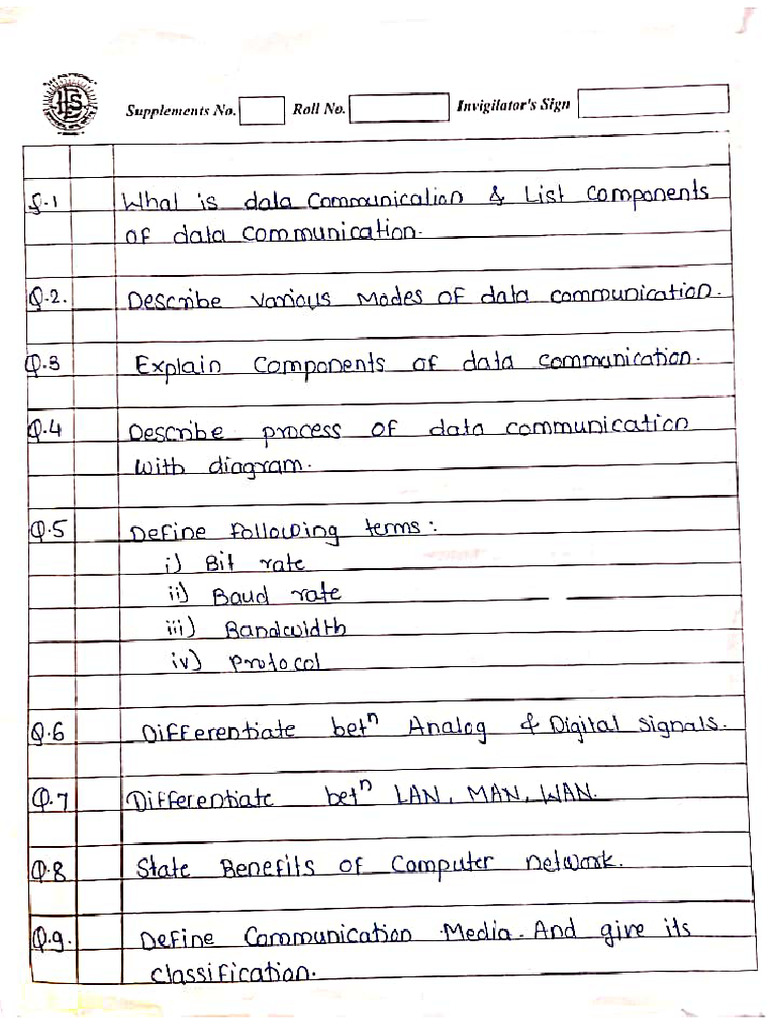 Supplements No. Roll No. Invigilator's Sign
Q.1 What is data communication & List components
of data communication.
Q.2. Describe various modes of data communication.
Q.3 Explain components of data communication.
Q.4 Describe process of data communication
with diagram.
Q.5 Define following terms:
i) Bit rate
ii) Baud rate
iii) Bandwidth
iv) Protocol
Q.6 Differentiate betⁿ Analog & Digital signals.
Q.7 Differentiate betⁿ LAN, MAN, WAN.
Q.8 State Benefits of computer network.
Q.9. Define Communication Media. And give its
classification.